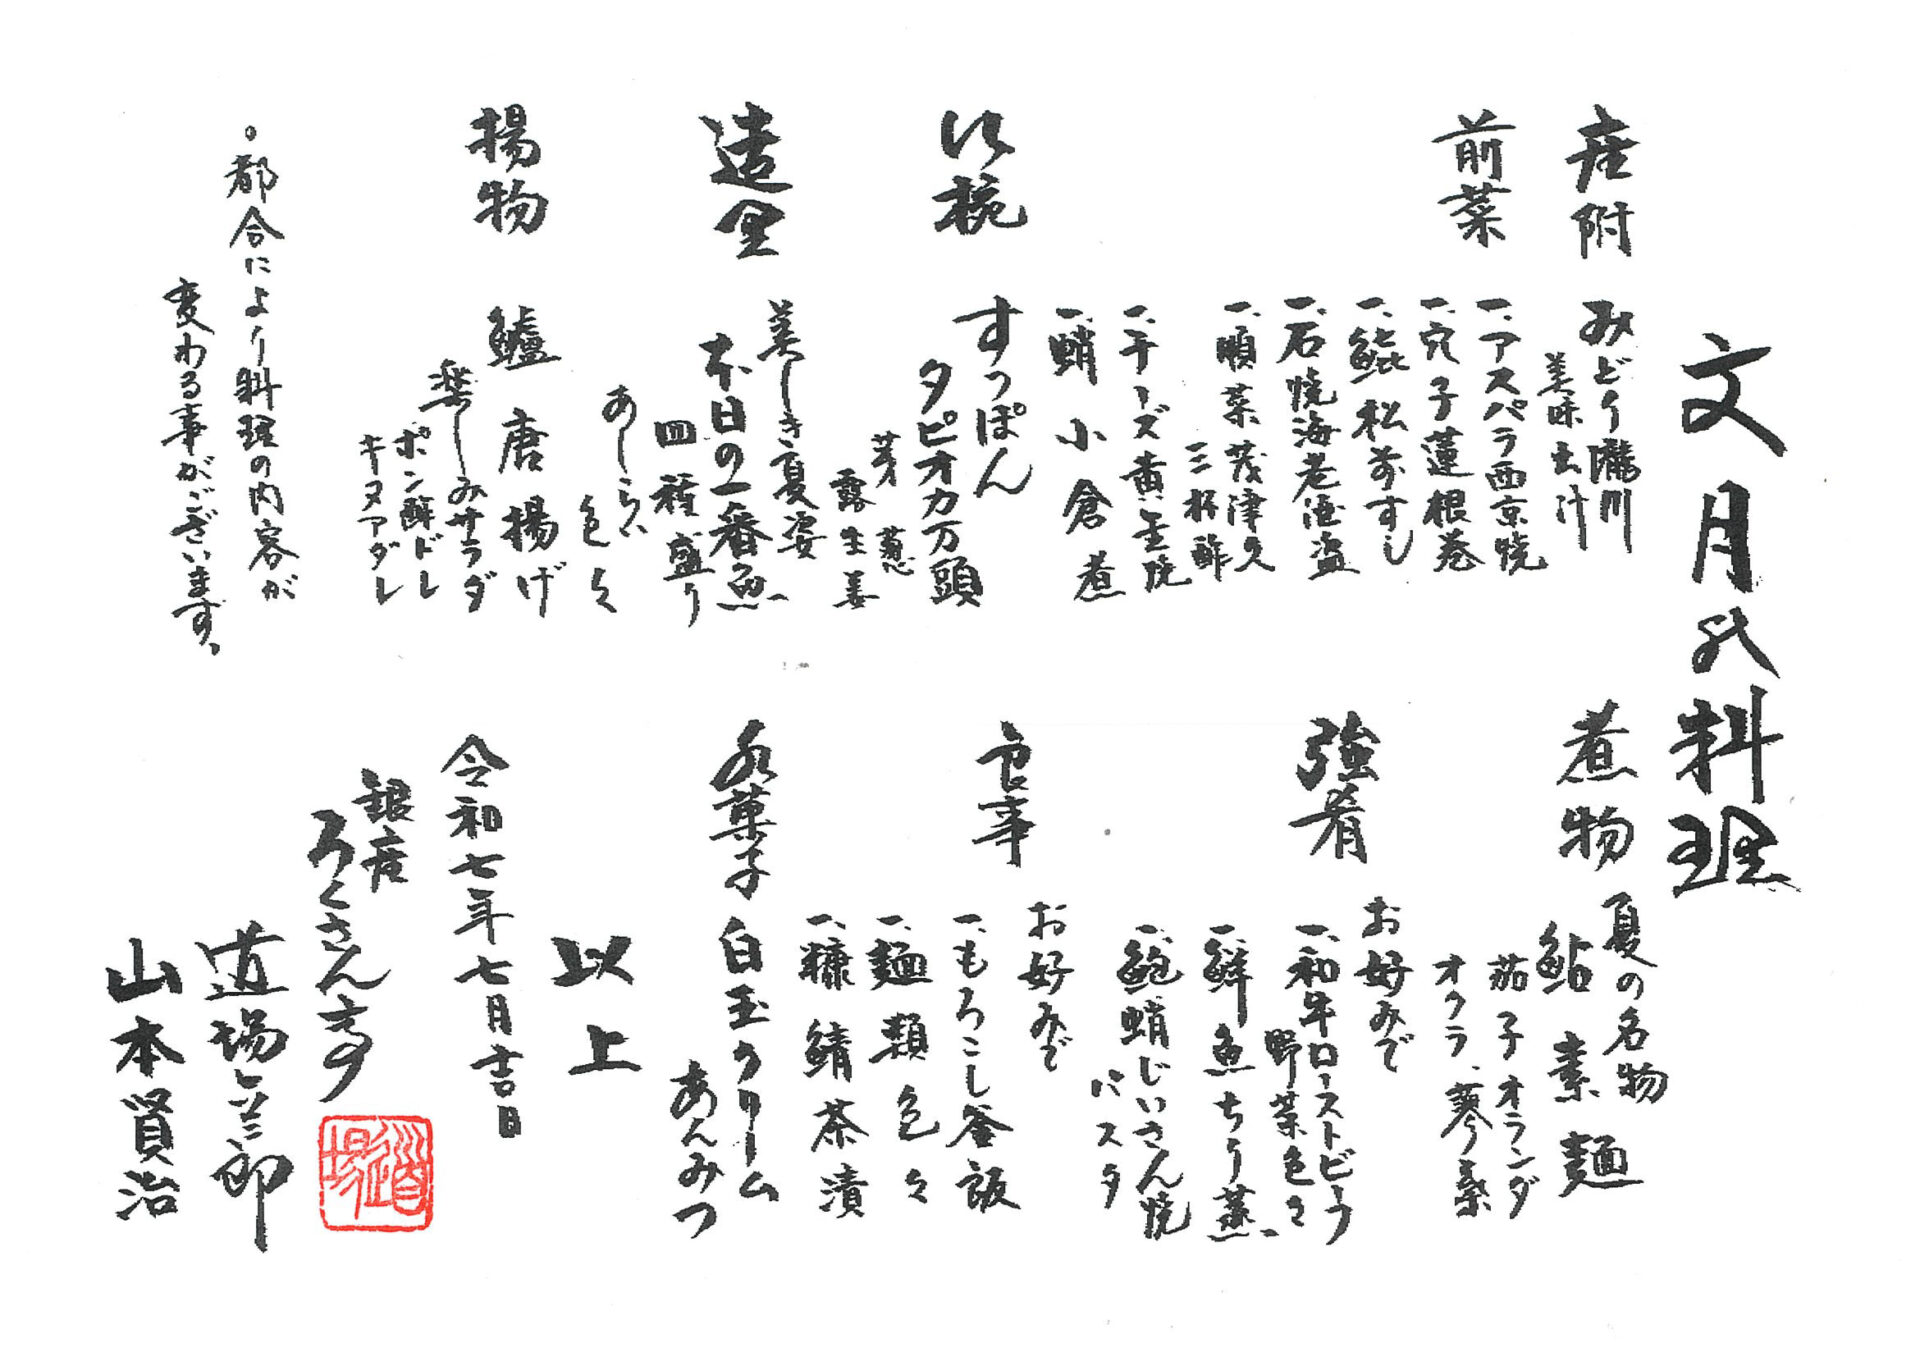 文月の料理
座附
みどり瀧川
美味出汁
前菜
一、アスパラ西京焼
一、穴子蓮根巻
一、鯱松前すし
一、石焼海老酒盗
一、順菜茂津久
三杯酢
一、チーズ黄金焼
一、蛸小倉煮
御椀
すっぽん
タピオカ万頭
芽葱
露生姜
造里
美しき夏姿
本日の一番魚
四種盛り
あしらい
色々
揚物
鱸唐揚げ
楽しみサラダ
ポン酢ドレ
キヌアダレ
。都合により料理の内容が
変わる事がございます。
煮物
夏の名物
鮎素麺
茄子オランダ
オクラ、蓼
強肴
お好みで
一、和牛ローストビーフ
野菜色々
一、鮮魚ちり蒸
一、鮑蛸じいさん焼
パスタ
食事
お好みで
一、もろこし釜飯
一、麺類色々
一、糠鯖茶漬
水菓子
白玉クリーム
あんみつ
以上
令和七年七月吉日
銀座
ろくさん亭
道場六三郎
山本賢治
道場